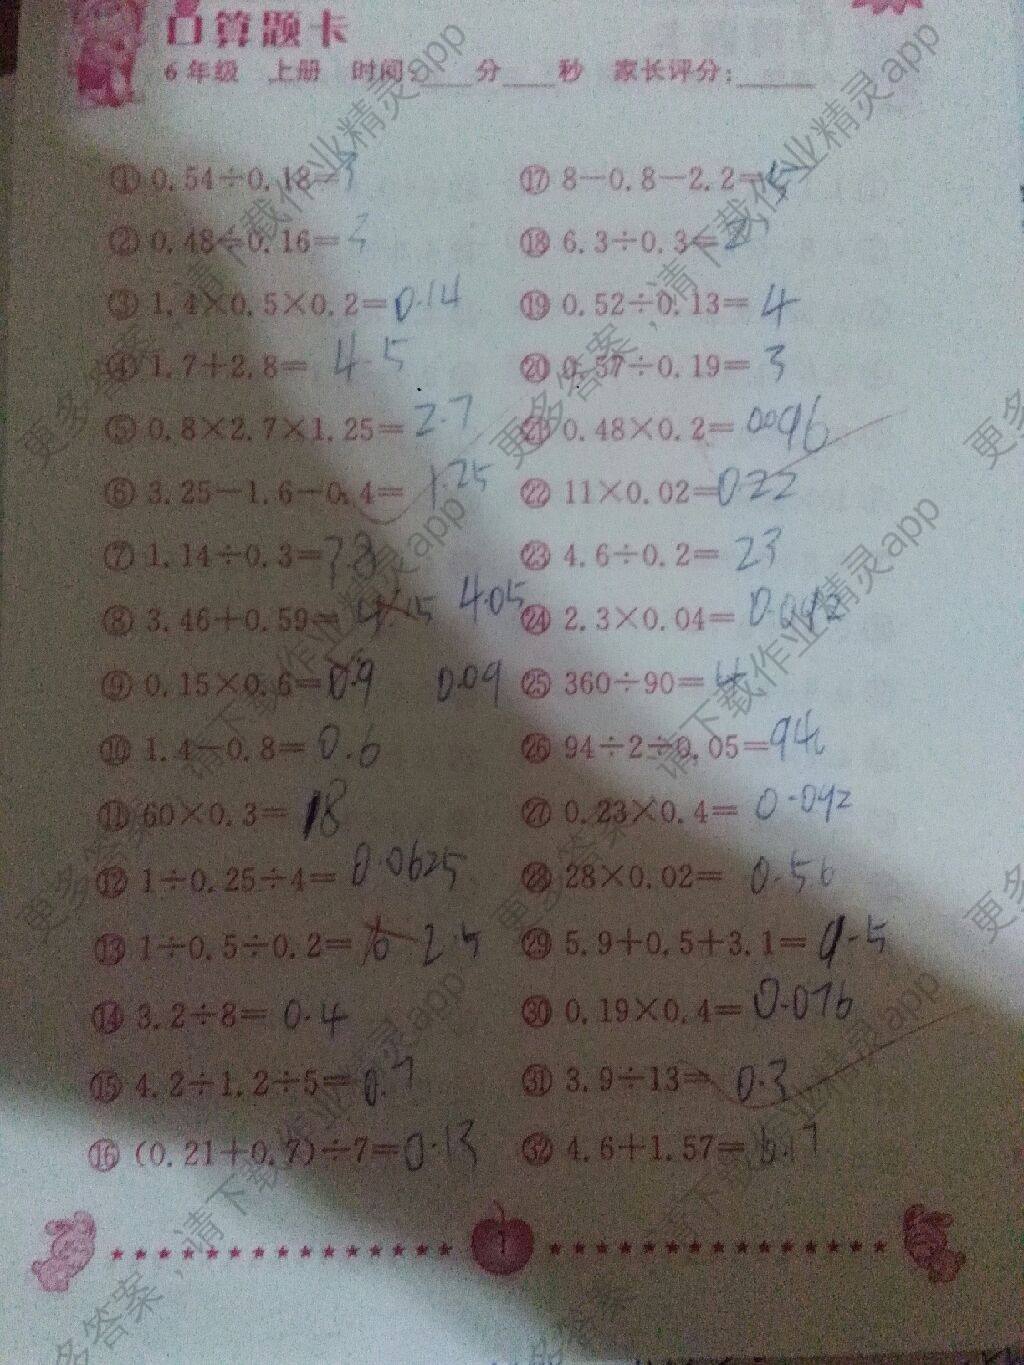 口算题卡
6年级 上册 时间:____分____秒 家长评分:______
① 0.54÷0.18=3
② 0.48÷0.16=3
③ 1.4×0.5×0.2=0.14
④ 1.7+2.8= 4.5
⑤ 0.8×2.7×1.25=2.7
⑥ 3.25-1.6-0.4= 1.25
⑦ 1.14÷0.3=
⑧ 3.46+0.59= 4.05
⑨ 0.15×0.6=0.9 0.09
⑩ 1.4-0.8= 0.6
⑪ 60×0.3= 18
⑫ 1÷0.25÷4= 0.0625
⑬ 1÷0.5÷0.2= 2.5
⑭ 3.2÷8= 0.4
⑮ 4.2÷1.2÷5=0.7
⑯ (0.21+0.7)÷7=0.13
⑰ 8-0.8-2.2=5
⑱ 6.3÷0.3=
⑲ 0.52÷0.13= 4
⑳ 0.57÷0.19= 3
㉑ 0.48×0.2= 0096
㉒ 11×0.02=0.22
㉓ 4.6÷0.2= 23
㉔ 2.3×0.04= 0.092
㉕ 360÷90=4
㉖ 94÷2÷0.05=
㉗ 0.23×0.4= 0.092
㉘ 28×0.02= 0.56
㉙ 5.9+0.5+3.1= 9.5
㉚ 0.19×0.4= 0.076
㉛ 3.9÷13= 0.3
㉜ 4.6+1.57= 6.17
1
更多答案，请下载作业精灵.app
更多答案，请下载作业精灵.app
更多答案，请下载作业精灵.app
更多答案，请下载作业精灵.app
更多答案，请下载作业精灵.app
更多答案，请下载作业精灵.app